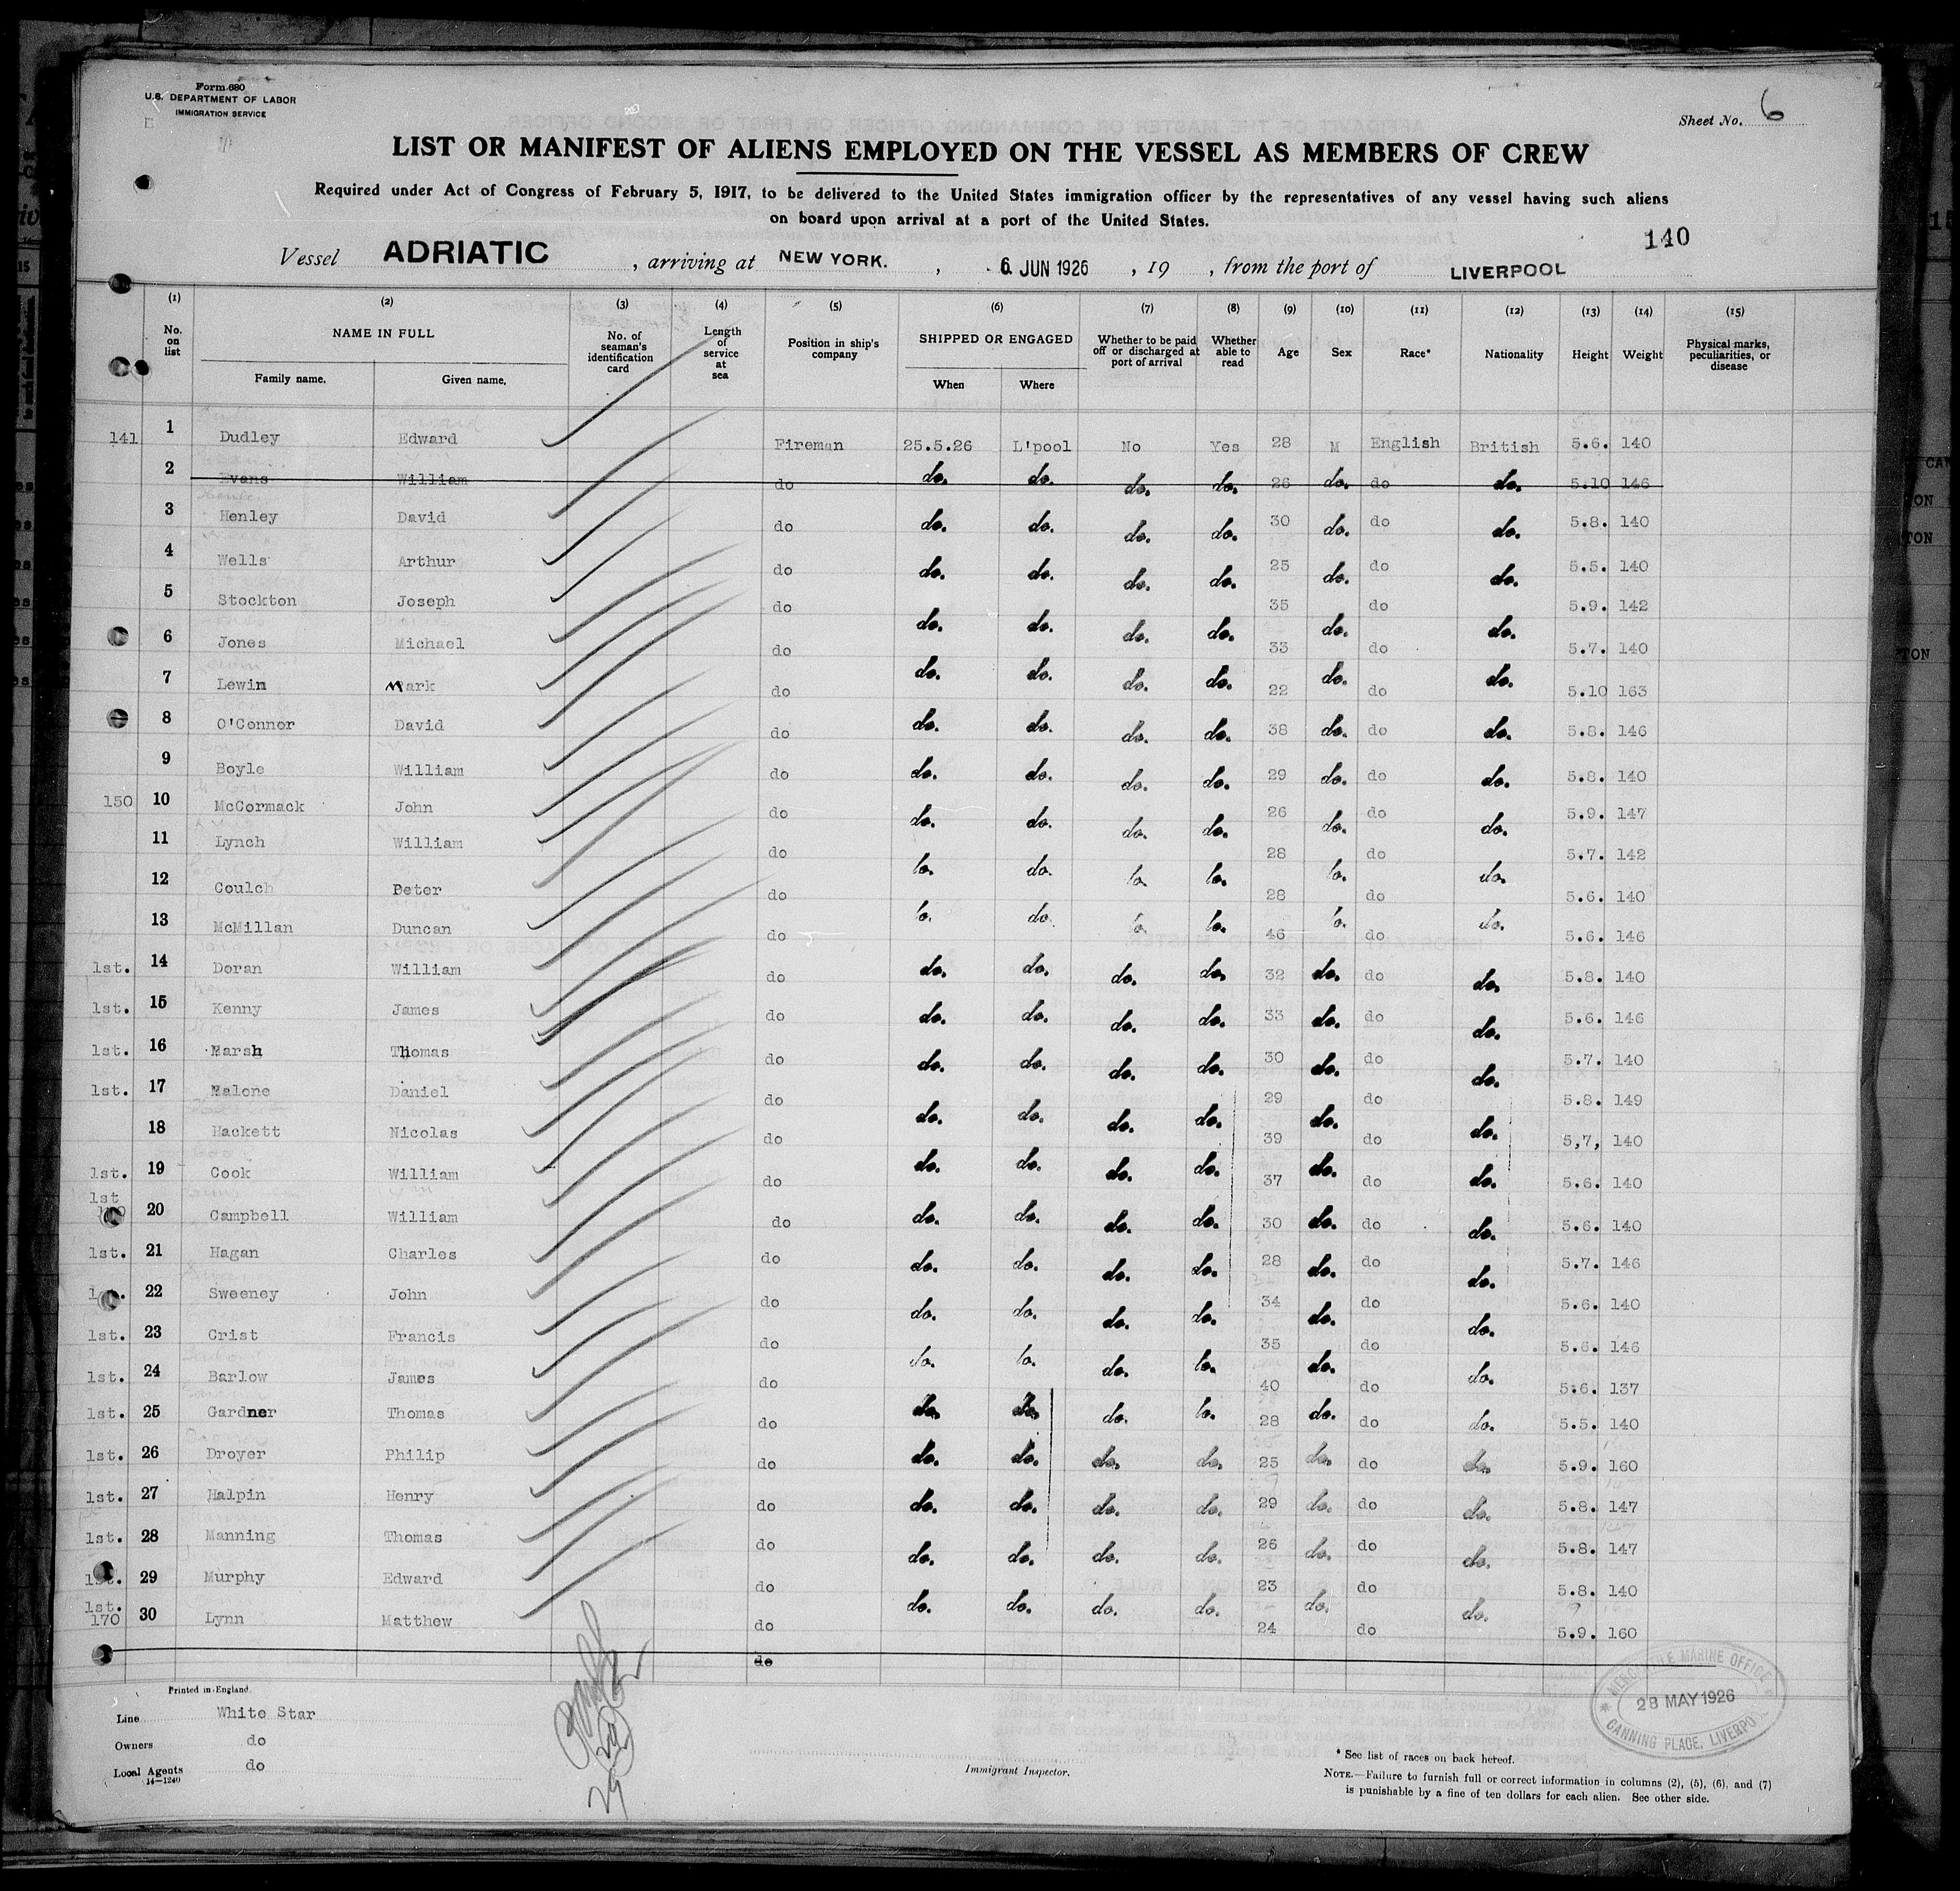 Form 680
U.S. DEPARTMENT OF LABOR
IMMIGRATION SERVICE
Sheet No. 6
LIST OR MANIFEST OF ALIENS EMPLOYED ON THE VESSEL AS MEMBERS OF CREW
Required under Act of Congress of February 5, 1917, to be delivered to the United States immigration officer by the representatives of any vessel having such aliens
on board upon arrival at a port of the United States.
140
Vessel ADRIATIC, arriving at NEW YORK., 6 JUN 1926, 19 , from the port of LIVERPOOL
(1) (2) (3) (4) (5) (6) (7) (8) (9) (10) (11) (12) (13) (14) (15)
No. on list NAME IN FULL Family name. Given name. No. of seaman's identification card Length of service at sea Position in ship's company SHIPPED OR ENGAGED When Where Whether to be paid off or discharged at port of arrival Whether able to read Age Sex Race* Nationality Height Weight Physical marks, peculiarities, or disease
141 1 Dudley Edward Fireman 25.5.26 L'pool No Yes 28 M English British 5.6. 140
2 Evans William do do. do. do. do. 26 do. do do. 5.10 146
3 Henley David do do. do. do. do. 30 do. do do. 5.8. 140
4 Wells Arthur do do. do. do. do. 25 do. do do. 5.5. 140
5 Stockton Joseph do do. do. do. do. 35 do. do do. 5.9. 142
6 Jones Michael do do. do. do. do. 33 do. do do. 5.7. 140
7 Lewin Mark do do. do. do. do. 22 do. do do. 5.10 163
8 O'Connor David do do. do. do. do. 38 do. do do. 5.8. 146
9 Boyle William do do. do. do. do. 29 do. do do. 5.8. 140
150 10 McCormack John do do. do. do. do. 26 do. do do. 5.9. 147
11 Lynch William do do. do. do. do. 28 do. do do. 5.7. 142
12 Coulch Peter do do. do. do. do. 28 do. do do. 5.6. 140
13 McMillan Duncan do do. do. do. do. 46 do. do do. 5.6. 146
1st. 14 Doran William do do. do. do. do. 32 do. do do. 5.8. 140
1st. 15 Kenny James do do. do. do. do. 33 do. do do. 5.6. 146
1st. 16 Marsh Thomas do do. do. do. do. 30 do. do do. 5.7. 140
1st. 17 Malone Daniel do do. do. do. do. 29 do. do do. 5.8. 149
18 Hackett Nicolas do do. do. do. do. 39 do. do do. 5,7, 140
1st. 19 Cook William do do. do. do. do. 37 do. do do. 5.6. 140
1st 20 Campbell William do do. do. do. do. 30 do. do do. 5.6. 140
1st. 21 Hagan Charles do do. do. do. do. 28 do. do do. 5.7. 146
22 Sweeney John do do. do. do. do. 34 do. do do. 5.6. 140
1st. 23 Crist Francis do do. do. do. do. 35 do. do do. 5.6. 146
1st. 24 Barlow James do do. do. do. do. 40 do. do do. 5.6. 137
1st. 25 Gardner Thomas do do. do. do. do. 28 do. do do. 5.5. 140
1st. 26 Droyer Philip do do. do. do. do. 25 do. do do. 5.9. 160
1st. 27 Halpin Henry do do. do. do. do. 29 do. do do. 5.8. 147
1st. 28 Manning Thomas do do. do. do. do. 26 do. do do. 5.8. 147
1st. 29 Murphy Edward do do. do. do. do. 23 do. do do. 5.8. 140
1st. 170 30 Lynn Matthew do 24 do 5.9. 160
do
Printed in England
Line White Star
Owners do
Local Agents do
14—1240
Immigrant Inspector.
MERCANTILE MARINE OFFICE
28 MAY 1926
CANNING PLACE, LIVERPO
* See list of races on back hereof.
NOTE.—Failure to furnish full or correct information in columns (2), (5), (6), and (7)
is punishable by a fine of ten dollars for each alien. See other side.